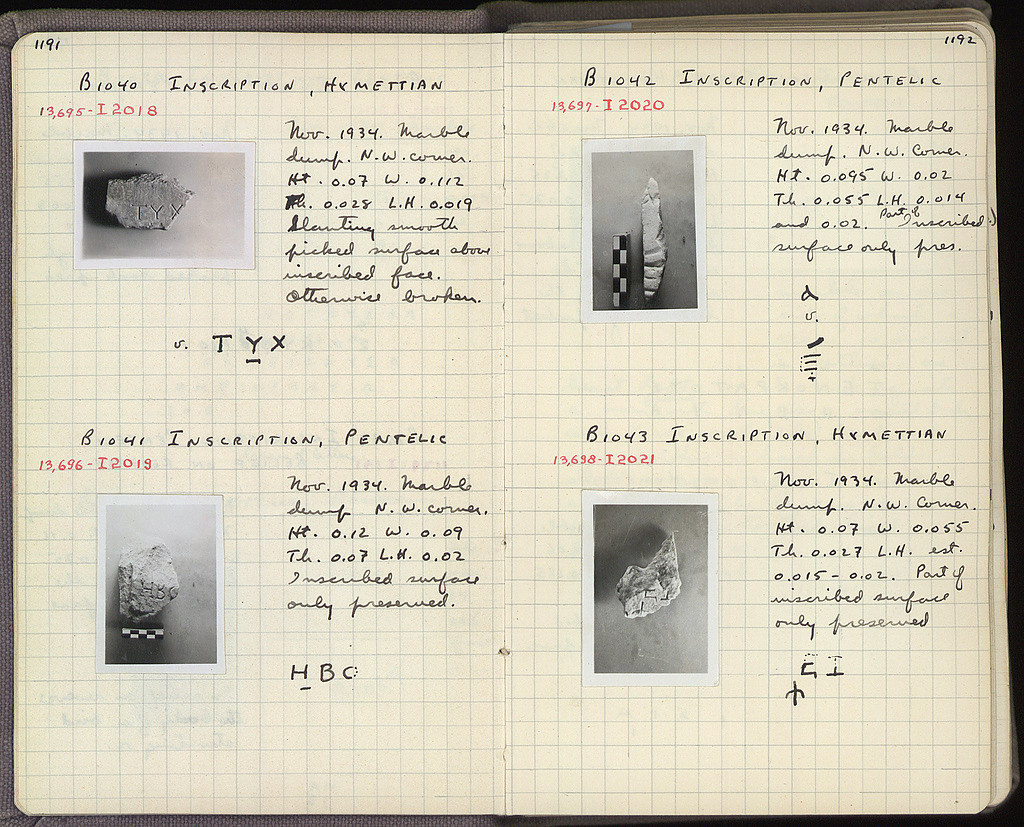 1191
B1040 INSCRIPTION, HYMETTIAN
13,695-I 2018
Nov. 1934. Marble
dump. N.W. corner.
Ht. 0.07 W. 0.112
Th. 0.028 L.H. 0.019
Slanting smooth
picked surface above
inscribed face.
Otherwise broken.
TYX
v. T Y X
B1041 INSCRIPTION, PENTELIC
13,696-I2019
Nov. 1934. Marble
dump N.W. corner.
Ht. 0.12 W. 0.09
Th. 0.07 L.H. 0.02
Inscribed surface
only preserved.
HBC
H B C
1192
B1042 INSCRIPTION, PENTELIC
13,697-I 2020
Nov. 1934. Marble
dump. N.W. Corner.
Ht. 0.095 W. 0.02
Th. 0.055 L.H. 0.014
and 0.02. (Part of inscribed
surface only pres.)
v.
B1043 INSCRIPTION, HYMETTIAN
13,698-I2021
Nov. 1934. Marble
dump. N.W. Corner.
Ht. 0.07 W. 0.055
Th. 0.027 L.H. est.
0.015-0.02. Part of
inscribed surface
only preserved